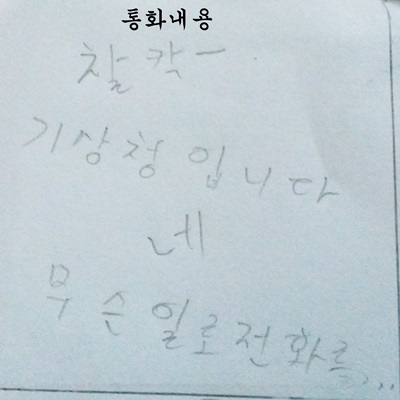 통화내용
찰칵ㅡ.
기상청입니다
네
무슨일로전화를...